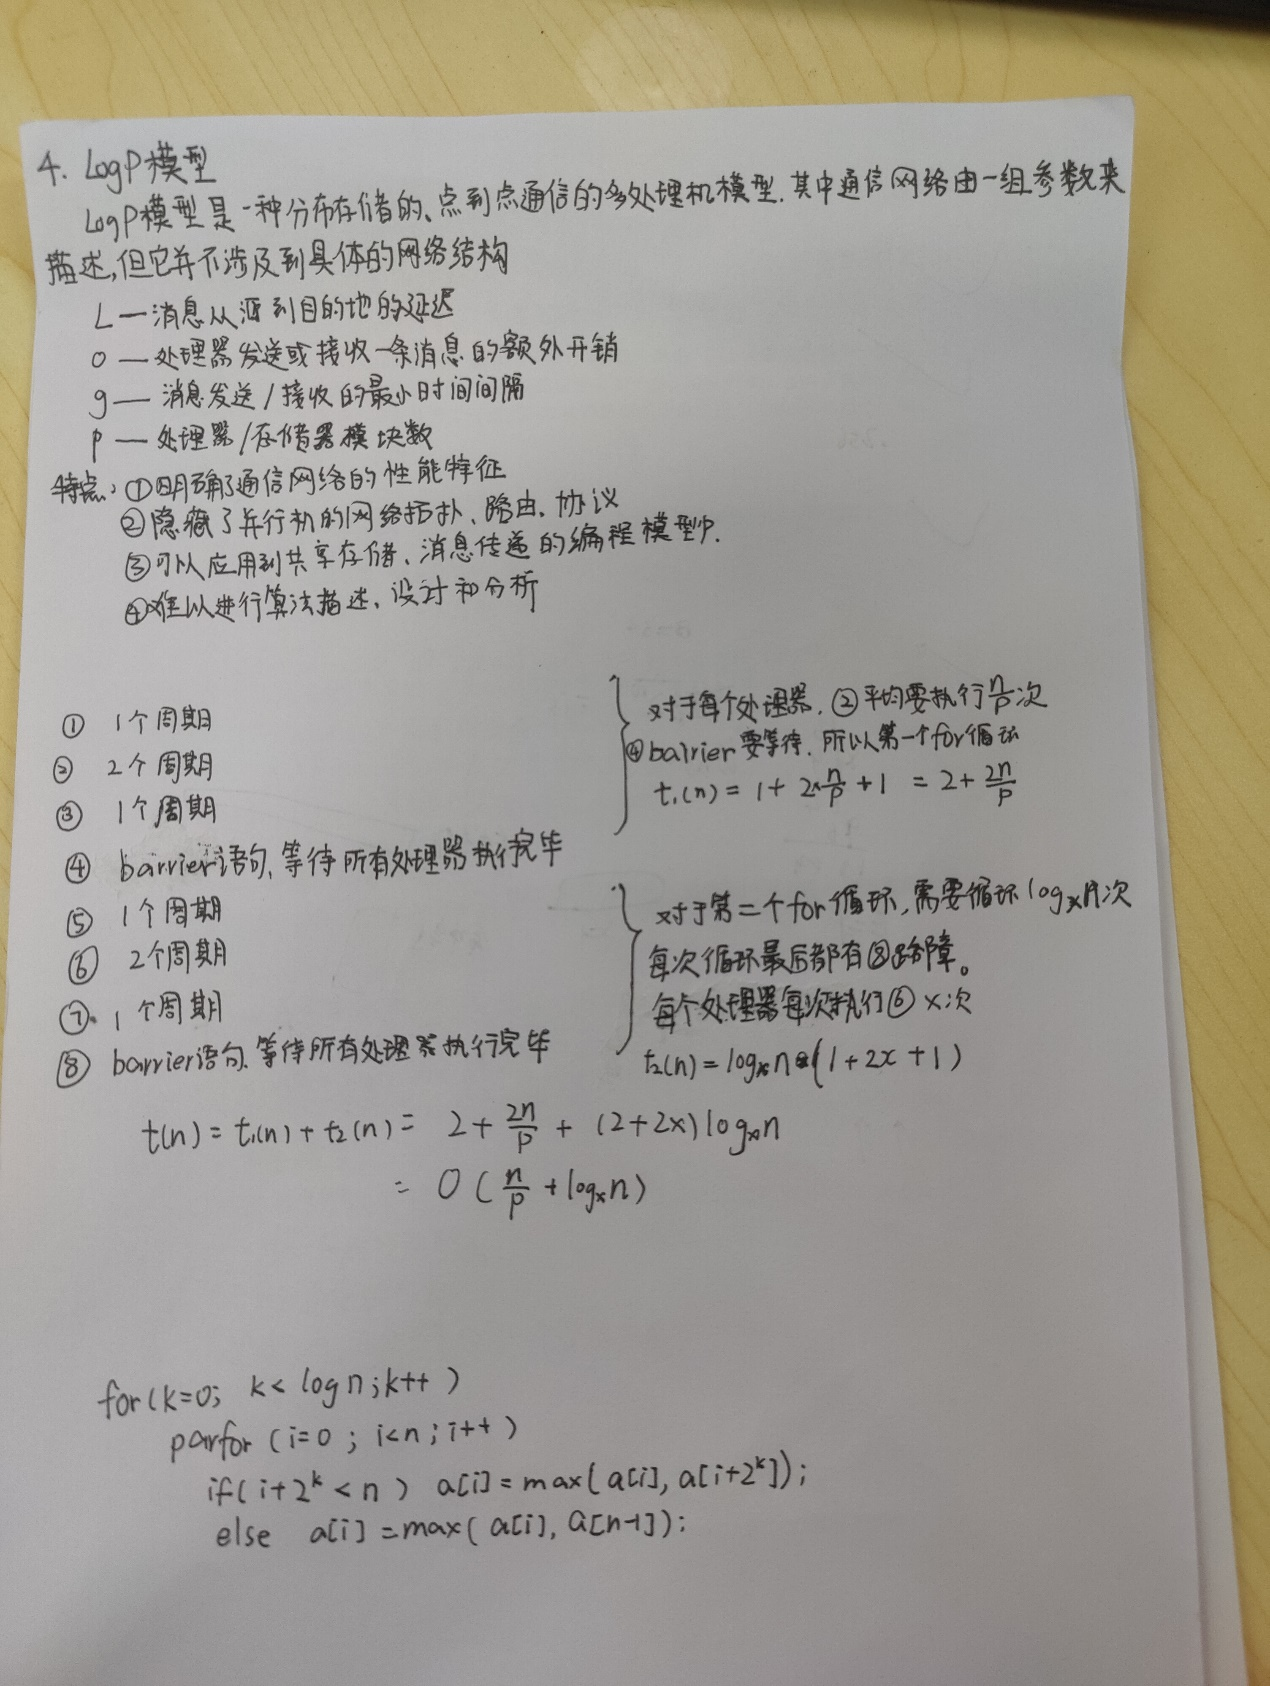 4. LogP模型
LogP模型是一种分布存储的、点到点通信的多处理机模型.其中通信网络由一组参数来
描述,但它并不涉及到具体的网络结构
L — 消息从源到目的地的延迟
o — 处理器发送或接收一条消息的额外开销
g — 消息发送/接收的最小时间间隔
p — 处理器/存储器模块数
特点: ①明确了通信网络的性能特征
②隐藏了并行机的网络拓扑、路由、协议
③可以应用到共享存储、消息传递的编程模型中.
④难以进行算法描述、设计和分析
① 1个周期
② 2个周期
③ 1个周期
④ barrier语句,等待所有处理器执行完毕
⑤ 1个周期
⑥ 2个周期
⑦ 1个周期
⑧ barrier语句.等待所有处理器执行完毕
对于每个处理器,②平均要执行n/p次
④barrier要等待.所以第一个for循环
t₁(n) = 1 + 2×n/p + 1 = 2 + 2n/p
对于第二个for循环,需要循环logₓn次
每次循环最后都有⑧路障。
每个处理器每次执行⑥x次
t₂(n) = logₓn(1+2x+1)
t(n) = t₁(n) + t₂(n) = 2 + 2n/p + (2+2x)logₓn
= O(n/p + logₓn)
for(k=0; k< logn;k++)
parfor (i=0; i<n; i++)
if(i+2ᵏ < n) a[i]=max(a[i], a[i+2ᵏ]);
else a[i]=max(a[i], a[n-1]);